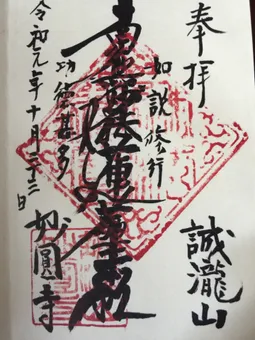 奉拝
誠瀧山
如説修行
南無妙法蓮華経
功徳甚多
令和元年十月二十三日
妙圓寺